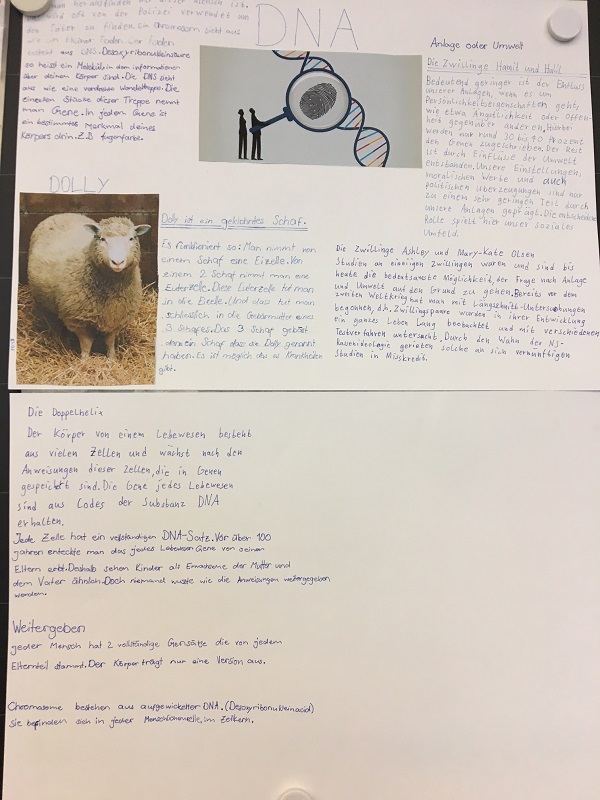 DNA
wird oft von der Polizei verwendet um
den Täter zu finden. Ein Chromosom sieht aus
aus DNS. Desoxyribonukleinsäure
so heisst ein Molekül in dem informationen
über deinen Körper sind. Die DNS sieht
aus wie eine verdrehte Wendeltreppe. Die
einzelnen Stücke dieser Treppe nennt
man Gene. In jedem Gene ist
ein bestimmtes Merkmal deines
Körpers drin. Z.B augenfarbe.
Anlage oder Umwelt
Die Zwillinge Hamit und
Bedeutend geringer ist der Einfluss
unserer Anlagen, wenn es um
Persönlichkeitseigenschaften geht,
wie etwa Ängstlichkeit oder Offen-
heit gegenüber anderen. Hierbei
werden nur rund 30 bis 40 Prozent
den Genen zugeschrieben. Der Rest
ist durch Einflüsse der Umwelt
entstanden. Unsere Einstellungen,
moralischen Werte und auch
politischen überzeugungen sind nur
zu einem sehr geringen Teil durch
unsere Anlagen geprägt. Die entscheidende
Rolle spielt hier unser soziales
Umfeld.
DOLLY
Dolly ist ein geklontes Schaf.
Es funktioniert so: Man nimmt von
einem Schaf eine Eizelle. Von
einem 2 Schaf nimmt man eine
Euterzelle. Diese Euterzelle tut man
in die Eizelle. Und dass tut man
schliesslich in die Gebärmutter eines
3 Schafes. Das 3 Schaf gebärt
dann ein Schaf dass sie Dolly genannt
haben. Es ist möglich das es Krankheiten
gibt.
Die Zwillinge Ashley und Mary-Kate Olsen
Studien an eineiigen Zwillingen waren und sind bis
heute die bedeutsamste Möglichkeit, der Frage nach Anlage
und Umwelt auf den Grund zu gehen. Bereits vor dem
zweiten Weltkrieg hat man mit Längsschnitt-Untersuchungen
begonnen, d.h. Zwillingspaare wurden in ihrer Entwicklung
ein ganzes Leben Lang beobachtet und mit verschiedenen
Testverfahren untersucht. Durch den Wahn der NS-
Rassenideologie gerieten solche an sich vernünftigen
Studien in Misskredit.
Die Doppelhelix
Der Körper von einem Lebewesen besteht
aus vielen Zellen und wächst nach den
Anweisungen dieser Zellen, die in Genen
gespeichert sind. Die Gene jedes Lebewesen
sind aus Codes der Substanz DNA
erhalten.
Jede Zelle hat ein vollständigen DNA-Satz. Vor über 100
jahren entdeckte man das jedes Lebewesen Gene von seinen
Eltern erbt. Deshalb sehen Kinder als Erwachsene der Mutter und
dem Vater ähnlich. Doch niemand wusste wie die Anweisungen weitergegeben
werden.
Weitergeben
jeder Mensch hat 2 vollständige Gensätze die von jedem
Elternteil stammt. Der Körper trägt nur eine Version aus.
Chromosome bestehen aus aufgewickelter DNA. (Desoxyribonukleinacid)
Sie befinden sich in jeder Menschlichenzelle, im Zellkern.